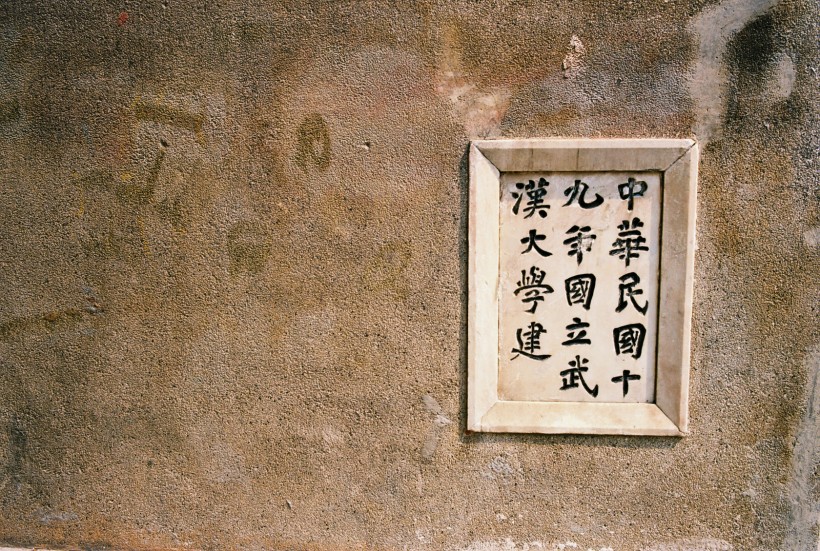 中華民國十
九年國立武
漢大學建